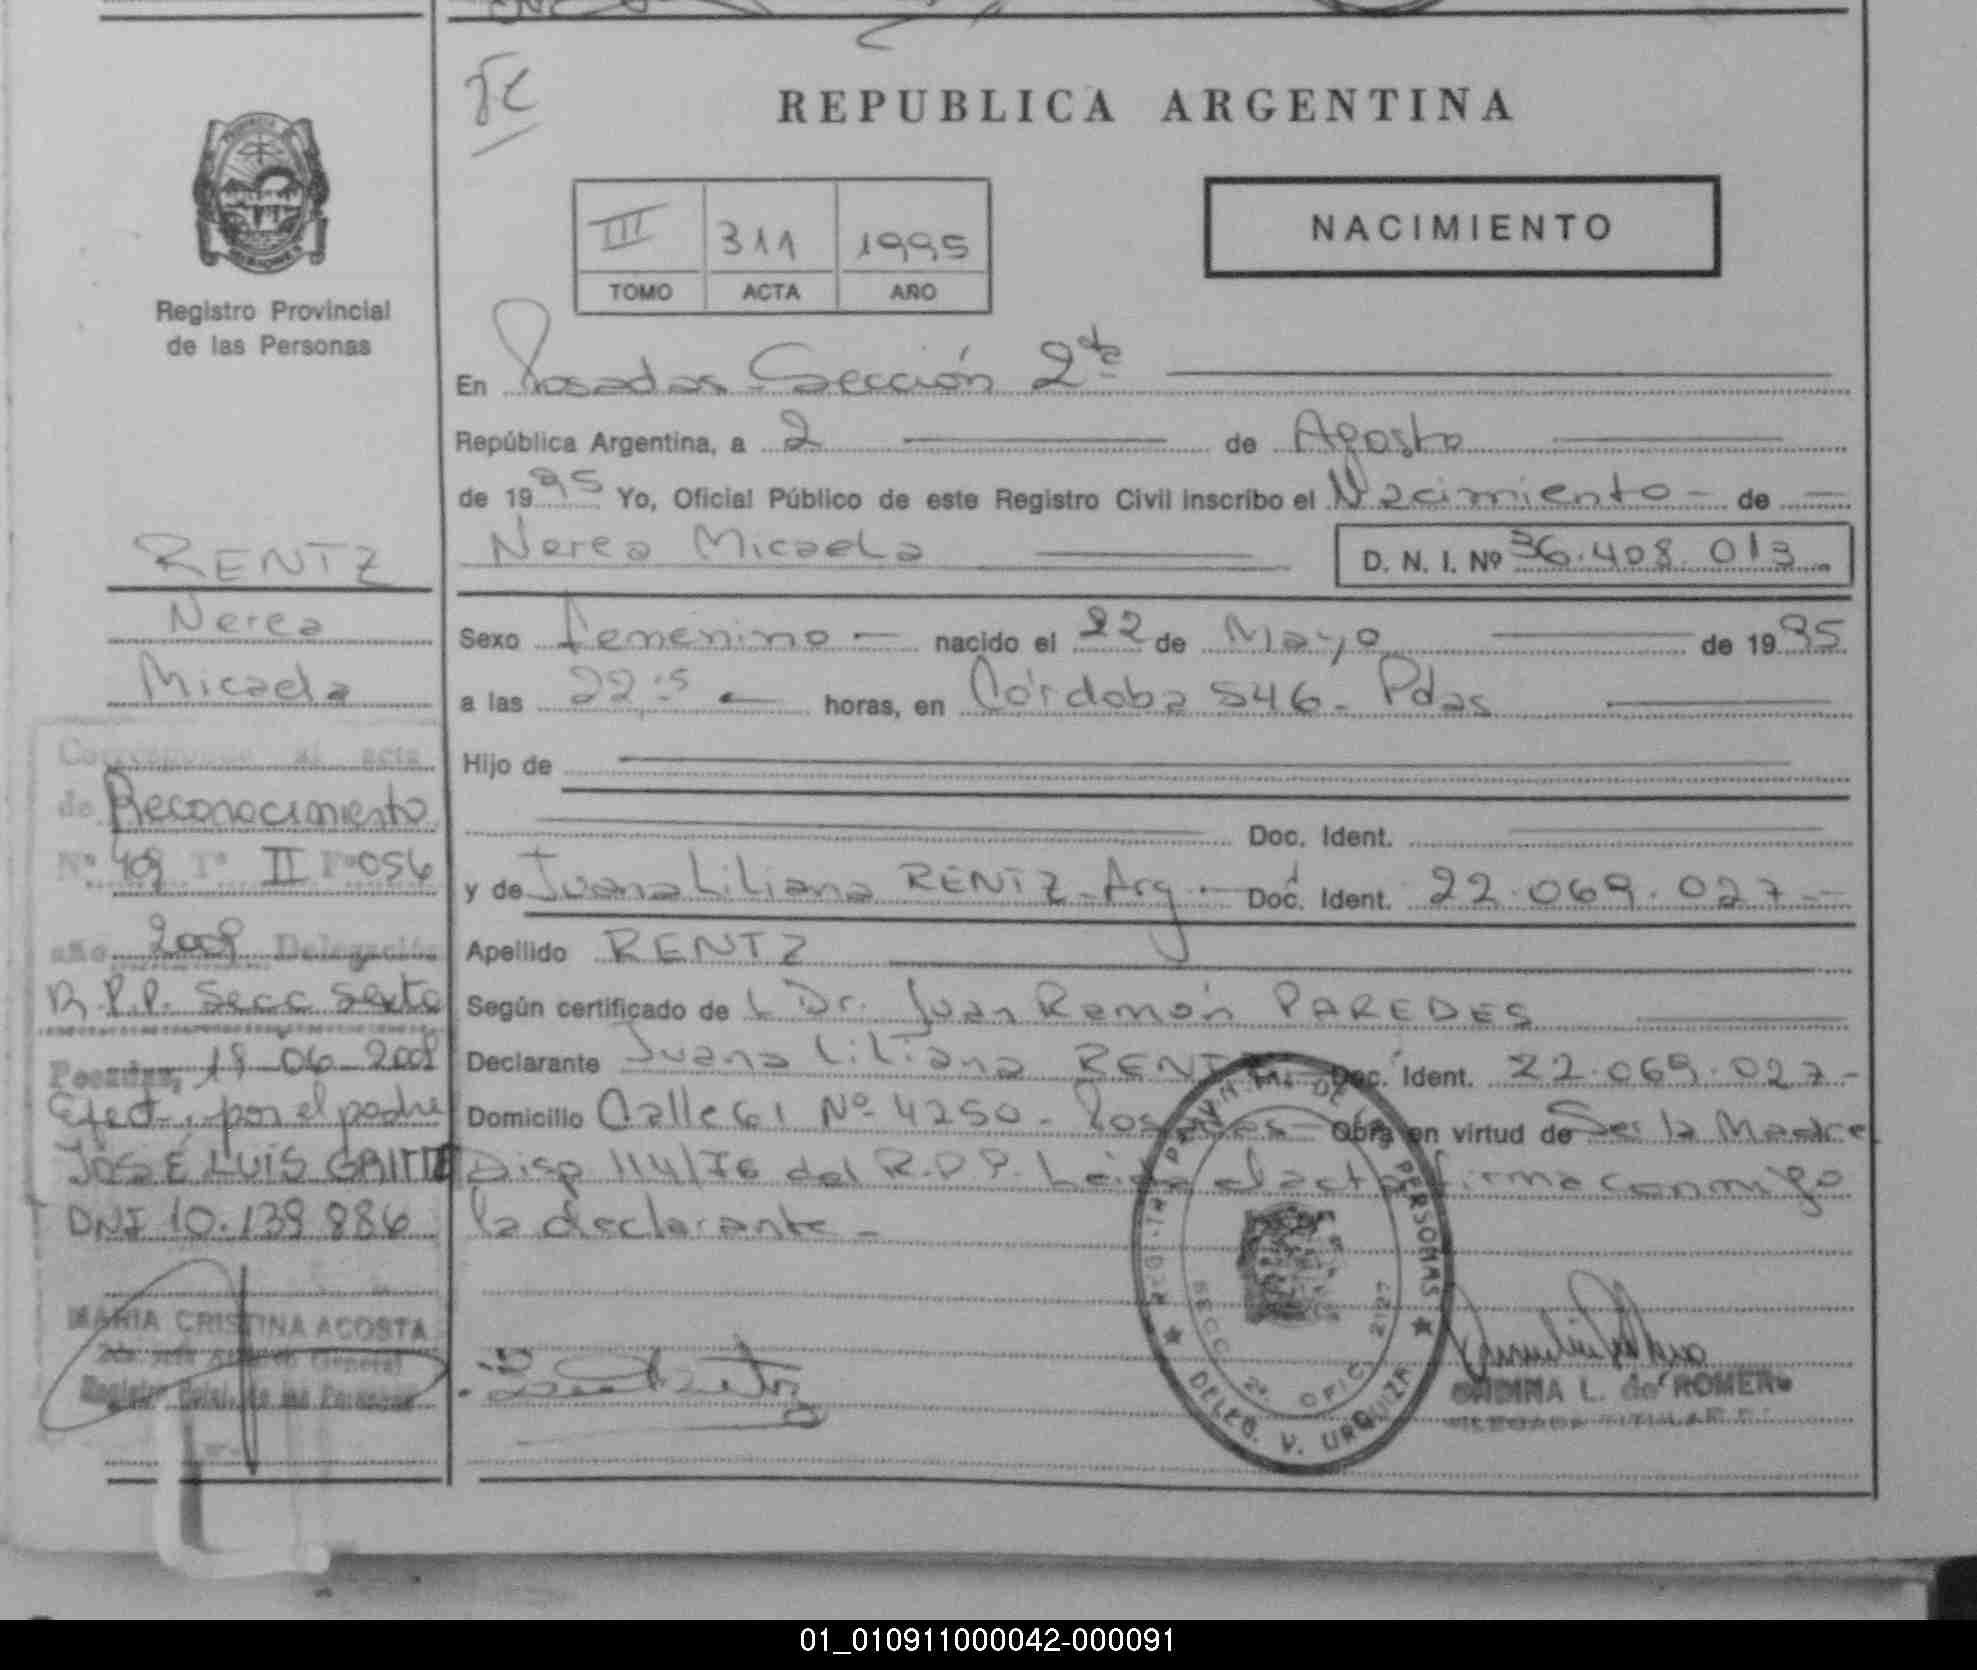 REPUBLICA ARGENTINA
NACIMIENTO
III 311 1995
TOMO ACTA AÑO
Registro Provincial
de las Personas
En Posadas Sección 2da
República Argentina, a 2 de Agosto
de 1995 Yo, Oficial Público de este Registro Civil inscribo el Nacimiento - de
Nerea Micaela D. N. I. Nº 36.408.013
Sexo femenino - nacido el 22 de Mayo de 1995
a las 22:5 horas, en Córdoba 546 - Pdas
Hijo de
Doc. Ident.
y de Juana Liliana RENTZ - Arg. - Doc. Ident. 22.069.027 -
Apellido RENTZ
Según certificado de L Dr. Juan Ramón PAREDES
Declarante Juana Liliana RENTZ Doc. Ident. 22.069.027 -
Domicilio Calle 61 Nº 4250 - Posadas - Obra en virtud de Ser la Madre
Disp 114/76 del R.P.P. Leída el acta firma conmigo
la declarante -
RENTZ
Nerea
Micaela
Corresponde al acta
de Reconocimiento
Nº 409 Tº II Fº 056
año 2009 Delegación
R.P.P. Secc Sexta
Posadas, 19-06-2009
Efect. por el padre
JOSÉ LUIS
DNI 10.139.886
MARIA CRISTINA ACOSTA
2do. Jefe Archivo General
Registro Pcial. de las Personas
REGISTRO PROVINCIAL DE LAS PERSONAS
SECC. 2ª. OFIC. 2127
DELEG. V. URQUIZA
ONDINA L. de ROMERO
DELEGADA TITULAR
01_010911000042-000091